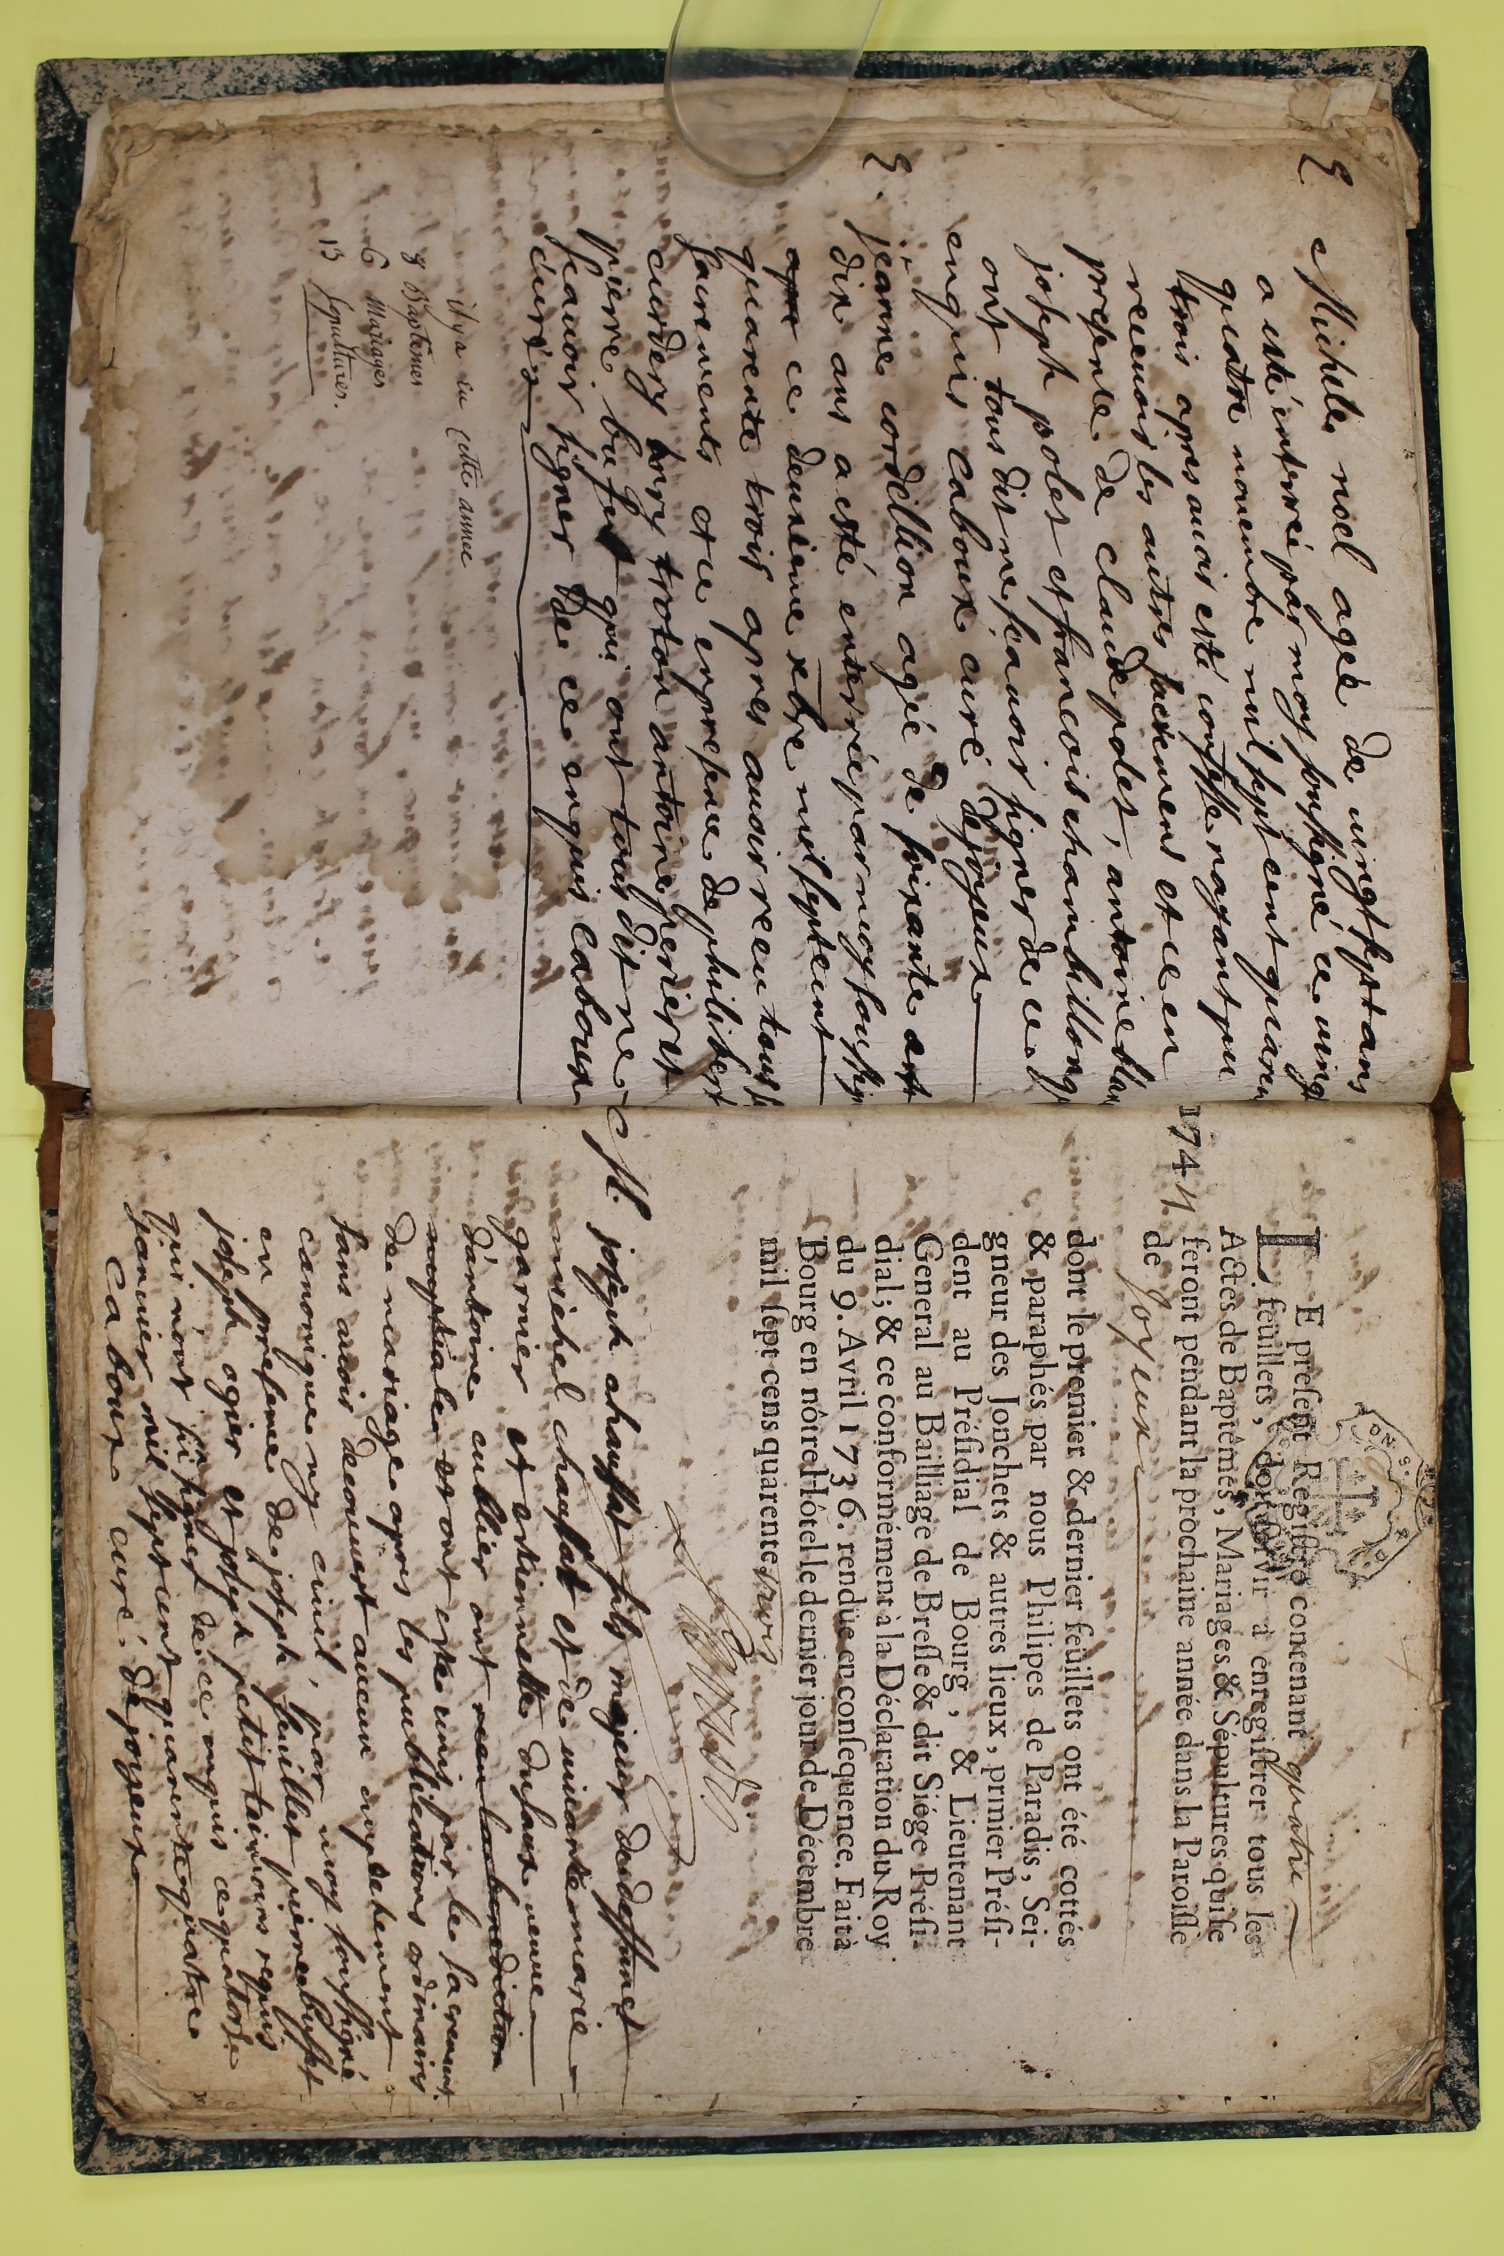 E Michelle noel agée de uingt sept ans
a esté enterré par moy soussigné ce uingt
quatre nouembre mil sept cent quaren
trois apres auoir esté confesse nayant peu
receuoir les autres sacremens et ce en
presence de claude polet, antoine blan
joseph polet et francois chambillon q
ont tous dit ne scauoir signer de ce
enquis Caboux curé de joyeux
E. jeanne cordellion agée de soixante et
dix ans a esté enterrée par moy soussig
ce deuxieme xbre mil sept cent
quarente trois apres auoir receu tous
sacrements et ce en presence de philibert
troton antoine perier et
pierre buffet qui ont tous dit ne
scauoir signer de ce enquis caboux
curé
il y a eu cette annee
8 Baptêmes
6 Mariages
13 Sepultures.
1744
LE present Registre contenant quatre
feuillets, doit servir à enregistrer tous les
Actes de Baptêmes, Mariages & Sépultures qui se
feront pendant la prochaine année dans la Paroisse
de Joyeux
dont le premier & dernier feuillets ont été cottés
& paraphés par nous Philipes de Paradis, Sei-
gneur des Jonchets & autres lieux, prmier Prési-
dent au Présidial de Bourg, & Lieutenant
General au Bailliage de Bresse & dit Siége Prési-
dial; & ce conformément à la Déclaration du Roy
du 9. Avril 1736. rendüe en consequence. Fait à
Bourg en nôtre Hôtel le dernier jour de Décembre
mil sept cens quarente trois
M. joseph chaussat fils majeur des deffunct
michel chaussat et de marie
garnier et estiennette dufour veuue
d'antoine cublier ont receu la benediction
nuptiale et ont esté unis par le sacrement
de mariage apres les publications ordinaires
sans auoir decouuert aucun empechement
canonique ny ciuil, par moy soussigné
en presence de joseph guillet pierre buffet
joseph ogier et joseph petit temoins requis
qui n'ont sceu signer de ce enquis ce quatorze
januier mil sept cent quarente quatre
Caboux curé de joyeux